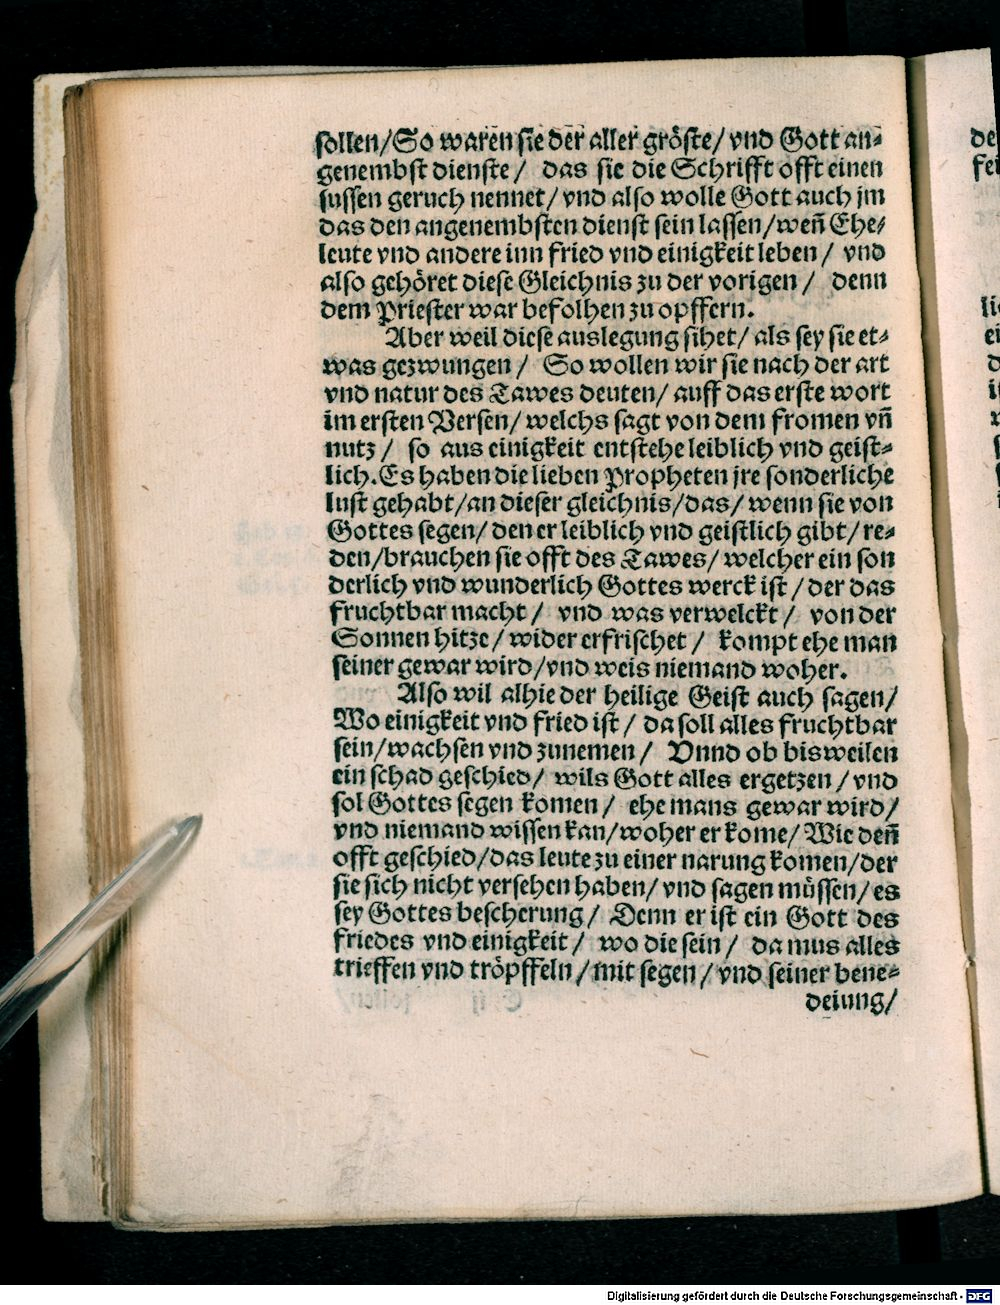 sollen/So waren sie der aller gröste/ vnd Gott an⸗
genembst dienste/ das sie die Schrifft offt einen
sussen geruch nennet/ vnd also wolle Gott auch jm
das den angenembsten dienst sein lassen/ weñ Ehe⸗
leute vnd andere inn fried vnd einigkeit leben/ vnd
also gehöret diese Gleichnis zu der vorigen/ denn
dem Priester war befolhen zu opffern.
Aber weil diese auslegung sihet/ als sey sie et⸗
was gezwungen/ So wollen wir sie nach der art
vnd natur des Tawes deuten/ auff das erste wort
im ersten Versen/ welchs sagt von dem fromen vñ
nutz/ so aus einigkeit entstehe leiblich vnd geist⸗
lich. Es haben die lieben Propheten jre sonderliche
lust gehabt/an dieser gleichnis/das/ wenn sie von
Gottes segen/ den er leiblich vnd geistlich gibt/ re⸗
den/brauchen sie offt des Tawes/ welcher ein son
derlich vnd wunderlich Gottes werck ist/ der das
fruchtbar macht/ vnd was verwelckt/ von der
Sonnen hitze/ wider erfrischet/ kompt ehe man
seiner gewar wird/vnd weis niemand woher.
Also wil alhie der heilige Geist auch sagen/
Wo einigkeit vnd fried ist/ da soll alles fruchtbar
sein/wachsen vnd zunemen/ Vnnd ob bisweilen
ein schad geschied/ wils Gott alles ergetzen/ vnd
sol Gottes segen komen/ ehe mans gewar wird/
vnd niemand wissen kan/woher er kome/ Wie deñ
offt geschied/das leute zu einer narung komen/der
sie sich nicht versehen haben/ vnd sagen müssen/ es
sey Gottes bescherung/ Denn er ist ein Gott des
friedes vnd einigkeit/ wo die sein/ da mus alles
trieffen vnd tröpffeln/ mit segen/ vnd seiner bene⸗
deiung/
Digitalisierung gefördert durch die Deutsche Forschungsgemeinschaft - DFG